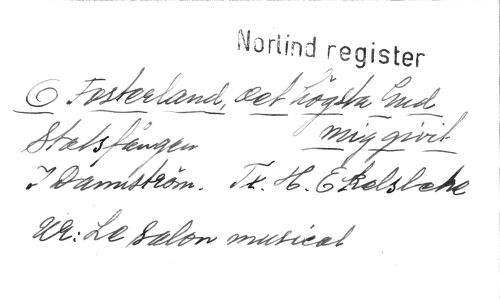 Norlind register
O Fosterland, det högsta Gud
mig givit
Statsfången
I Dannström. Tx. H. E Kelslehe
Ur: Le Salon musical